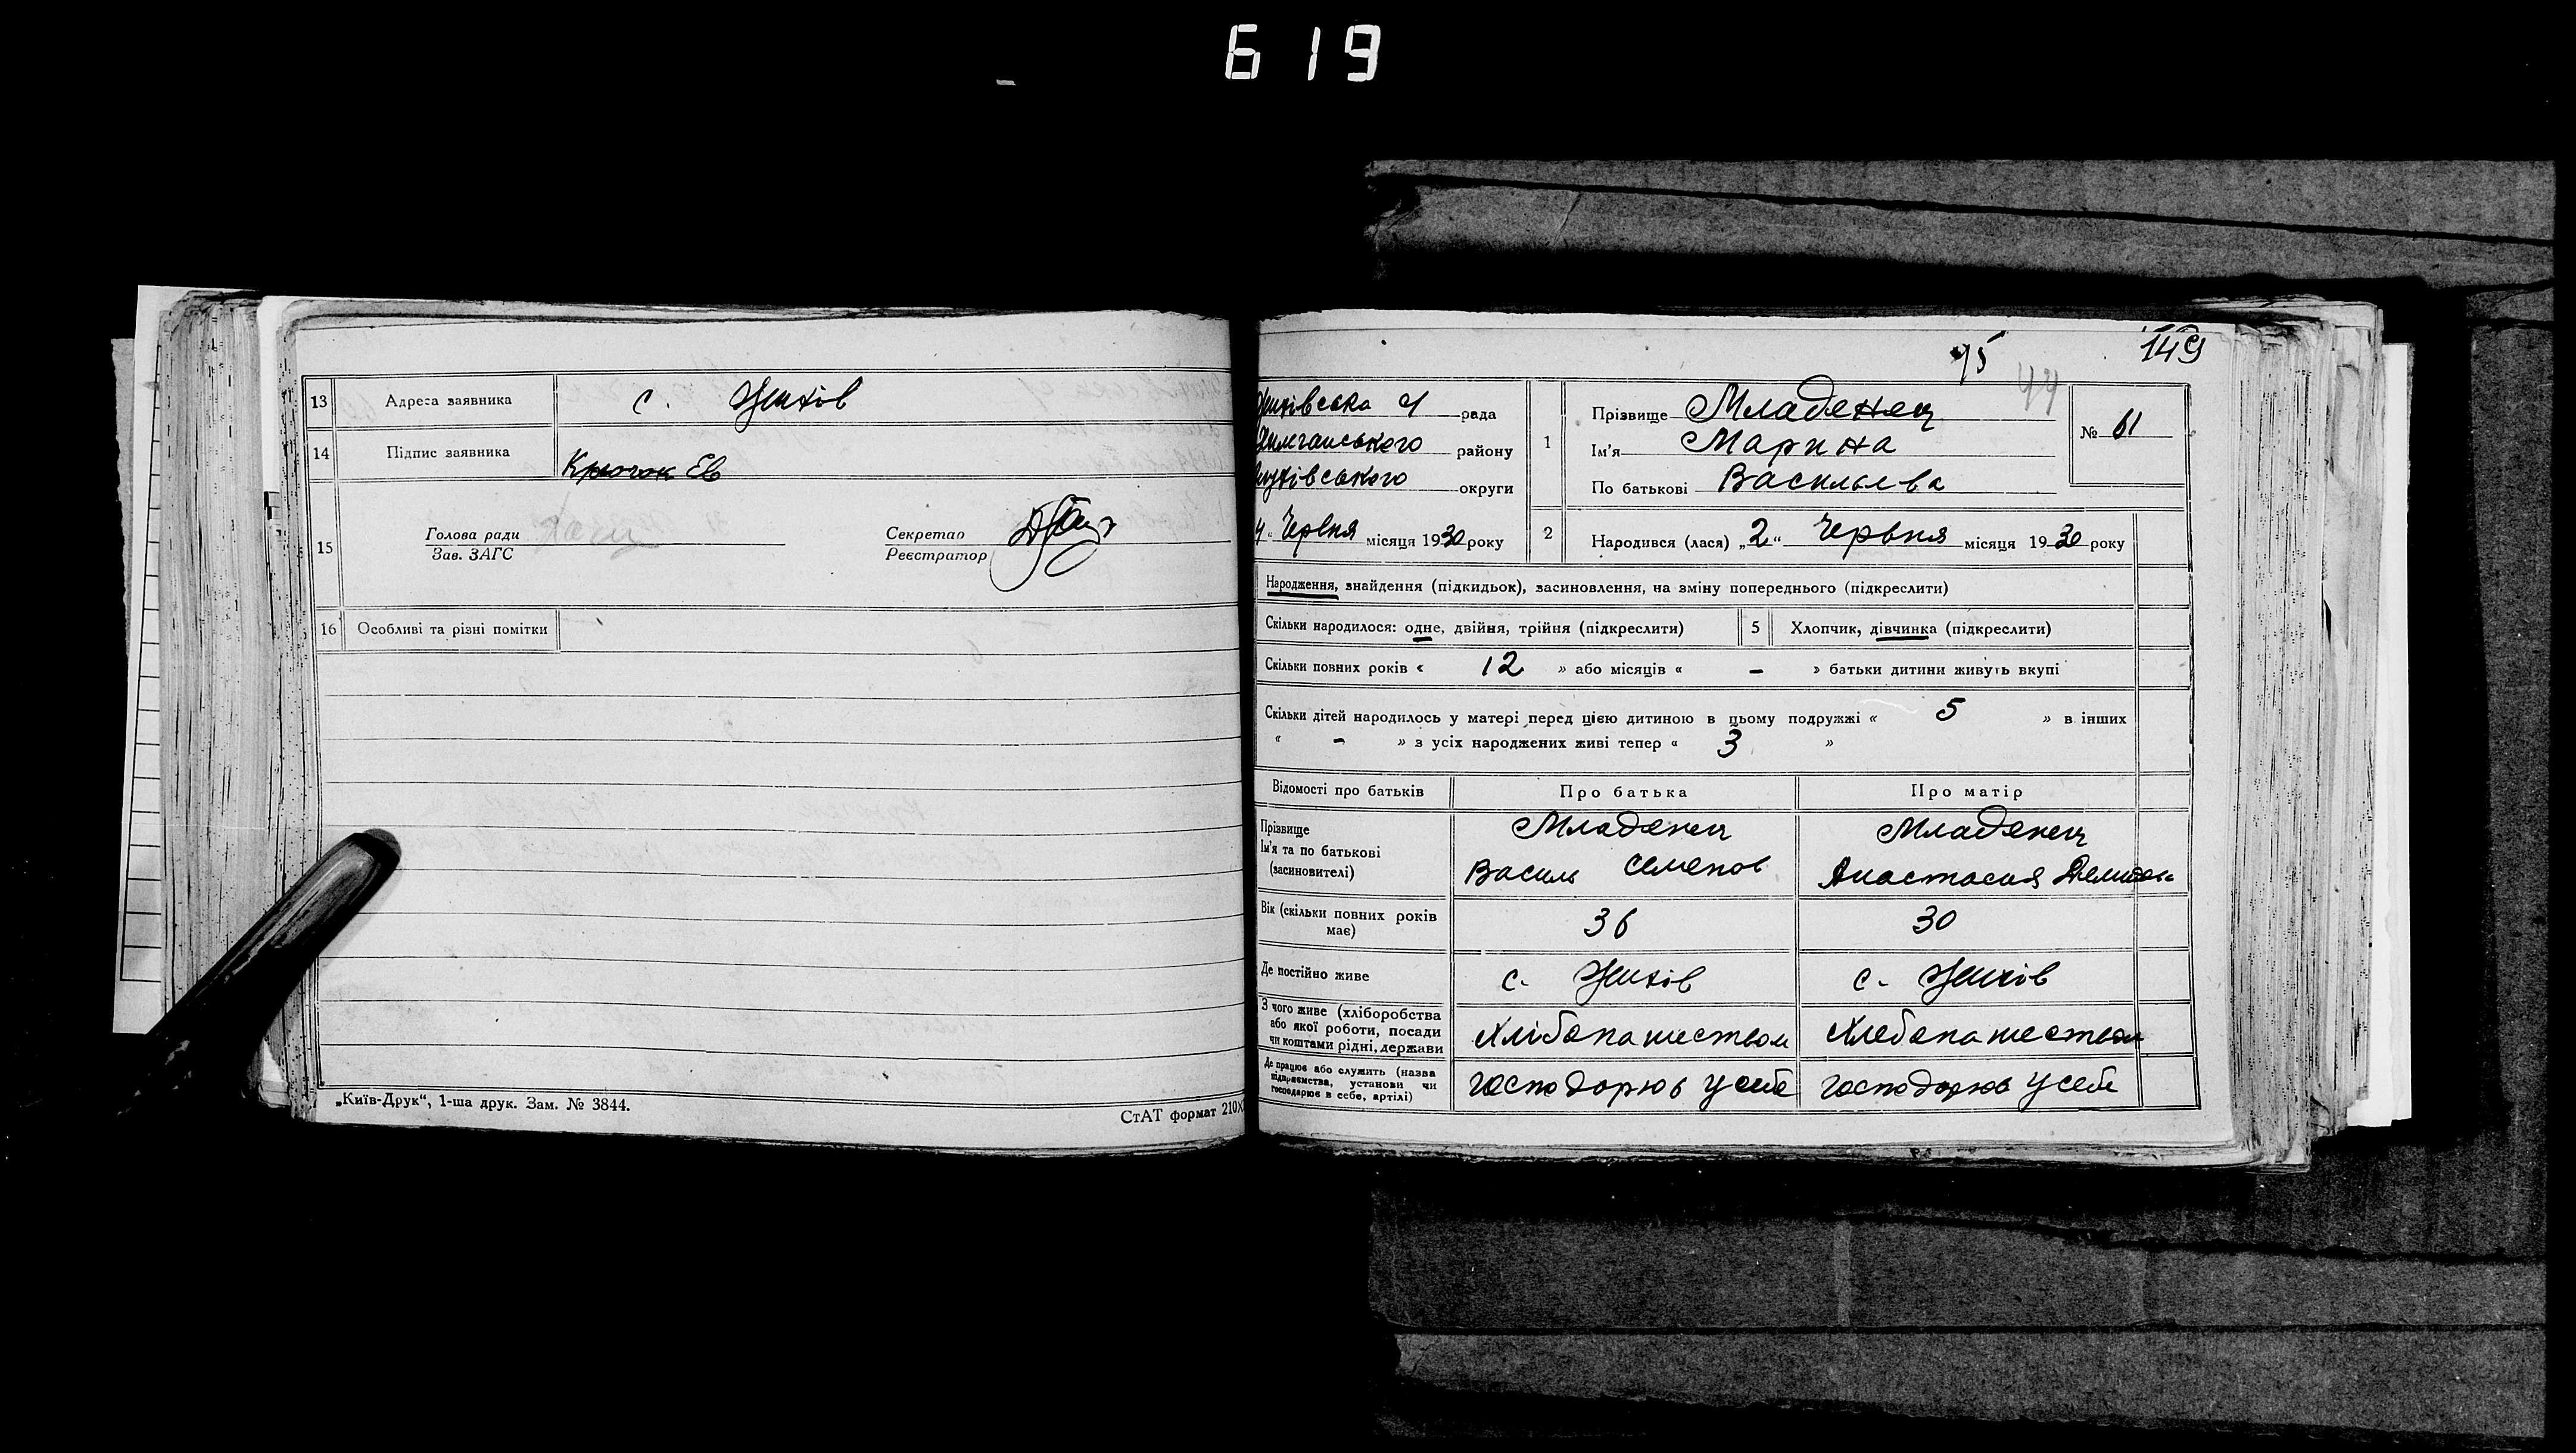 619
13 Адреса заявника с. Уткiв
14 Підпис заявника Крючок Ев
15 Голова ради Секретар
Зав. ЗАГС Реєстратор
16 Особливі та різні помітки
„Київ-Друк“, 1-ша друк. Зам. № 3844.
СтАТ формат 210×
75 44 149
рада
району
округи
4 „ Червня місяця 1930 року
1 Прізвище Младенец
Ім'я Марина
По батькові Васильева
№ 61
2 Народився (лася) „2“ Червня місяця 1930 року
Народження, знайдення (підкидьок), засиновлення, на зміну попереднього (підкреслити)
Скільки народилося: одне, двійня, трійня (підкреслити) 5 Хлопчик, дівчинка (підкреслити)
Скільки повних років « 12 » або місяців « – » батьки дитини живуть вкупі
Скільки дітей народилось у матері перед цією дитиною в цьому подружжі « 5 » в інших
« – » з усіх народжених живі тепер « 3 »
Відомості про батьків Про батька Про матір
Прізвище Младенец Младенец
Ім'я та по батькові
(засиновителі) Василь Семенов Анастасия
Вік (скільки повних років
має) 36 30
Де постійно живе с. с.
З чого живе (хліборобства
або якої роботи, посади
чи коштами рідні, держави Хлібопашеством Хлебопашеством
Де працює або служить (назва
підприємства, установи чи
господарює в себе, артілі) господорює у себе господорює у себе